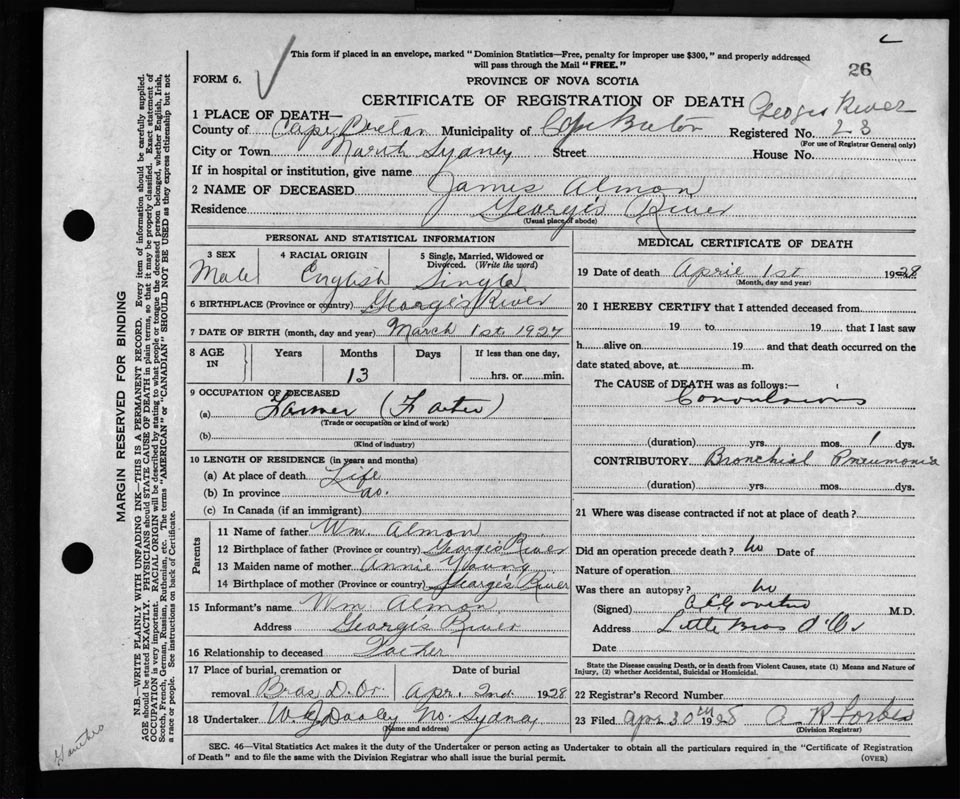 This form if placed in an envelope, marked "Dominion Statistics—Free, penalty for improper use $300," and properly addressed
will pass through the Mail "FREE."
26
FORM 6.
PROVINCE OF NOVA SCOTIA
CERTIFICATE OF REGISTRATION OF DEATH
Georges River
1 PLACE OF DEATH—
County of Cape Breton Municipality of Cape Breton Registered No. 23
(For use of Registrar General only)
City or Town North Sydney Street House No.
If in hospital or institution, give name
2 NAME OF DECEASED James Almon
Residence George's River
(Usual place of abode)
PERSONAL AND STATISTICAL INFORMATION
3 SEX 4 RACIAL ORIGIN 5 Single, Married, Widowed or
Divorced. (Write the word)
Male English Single
6 BIRTHPLACE (Province or country) George's River
7 DATE OF BIRTH (month, day and year) March 1st 1927
8 AGE IN Years Months Days If less than one day,
13 hrs. or min.
9 OCCUPATION OF DECEASED
(a) Farmer (Father)
(Trade or occupation or kind of work)
(b)
(Kind of industry)
10 LENGTH OF RESIDENCE (in years and months)
(a) At place of death Life
(b) In province do.
(c) In Canada (if an immigrant)
Parents
11 Name of father Wm. Almon
12 Birthplace of father (Province or country) George's River
13 Maiden name of mother Annie Young
14 Birthplace of mother (Province or country) George's River
15 Informant's name Wm Almon
Address George's River
16 Relationship to deceased Father
17 Place of burial, cremation or Date of burial
removal Bras D.Or. Apr. 2nd 1928
18 Undertaker W J Dooley No. Sydney
(Name and address)
MEDICAL CERTIFICATE OF DEATH
19 Date of death April 1st 1928
(Month, day and year)
20 I HEREBY CERTIFY that I attended deceased from
19 to 19 that I last saw
h alive on 19 and that death occurred on the
date stated above, at m.
The CAUSE of DEATH was as follows:—
Convulsions
(duration) yrs. mos. 1 dys.
CONTRIBUTORY Bronchial Pneumonia
(duration) yrs. mos. dys.
21 Where was disease contracted if not at place of death?
Did an operation precede death? no Date of
Nature of operation
Was there an autopsy? no
(Signed) M.D.
Address Little Bras d'Or
Date
State the Disease causing Death, or in death from Violent Causes, state (1) Means and Nature of
Injury, (2) whether Accidental, Suicidal or Homicidal.
22 Registrar's Record Number
23 Filed Apr 30th 1928 A R Forbes
(Division Registrar)
SEC. 46—Vital Statistics Act makes it the duty of the Undertaker or person acting as Undertaker to obtain all the particulars required in the "Certificate of Registration
of Death" and to file the same with the Division Registrar who shall issue the burial permit.
(OVER)
MARGIN RESERVED FOR BINDING
N.B.—WRITE PLAINLY WITH UNFADING INK—THIS IS A PERMANENT RECORD. Every item of information should be carefully supplied.
AGE should be stated EXACTLY. PHYSICIANS should STATE CAUSE OF DEATH in plain terms, so that it may be properly classified. Exact statement of
OCCUPATION is very important. RACIAL ORIGIN will be described by stating to what people or tongue the deceased person belonged, whether English, Irish,
Scotch, French, German, Russian, Ruthenian, etc. The terms "AMERICAN" or "CANADIAN" SHOULD NOT BE USED as they express citizenship but not
a race or people. See instructions on back of Certificate.